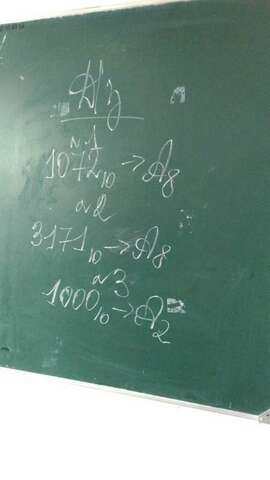 Д/з
№1
1072₁₀ → A₈
№2
3171₁₀ → A₈
№3
1000₁₀ → A₂